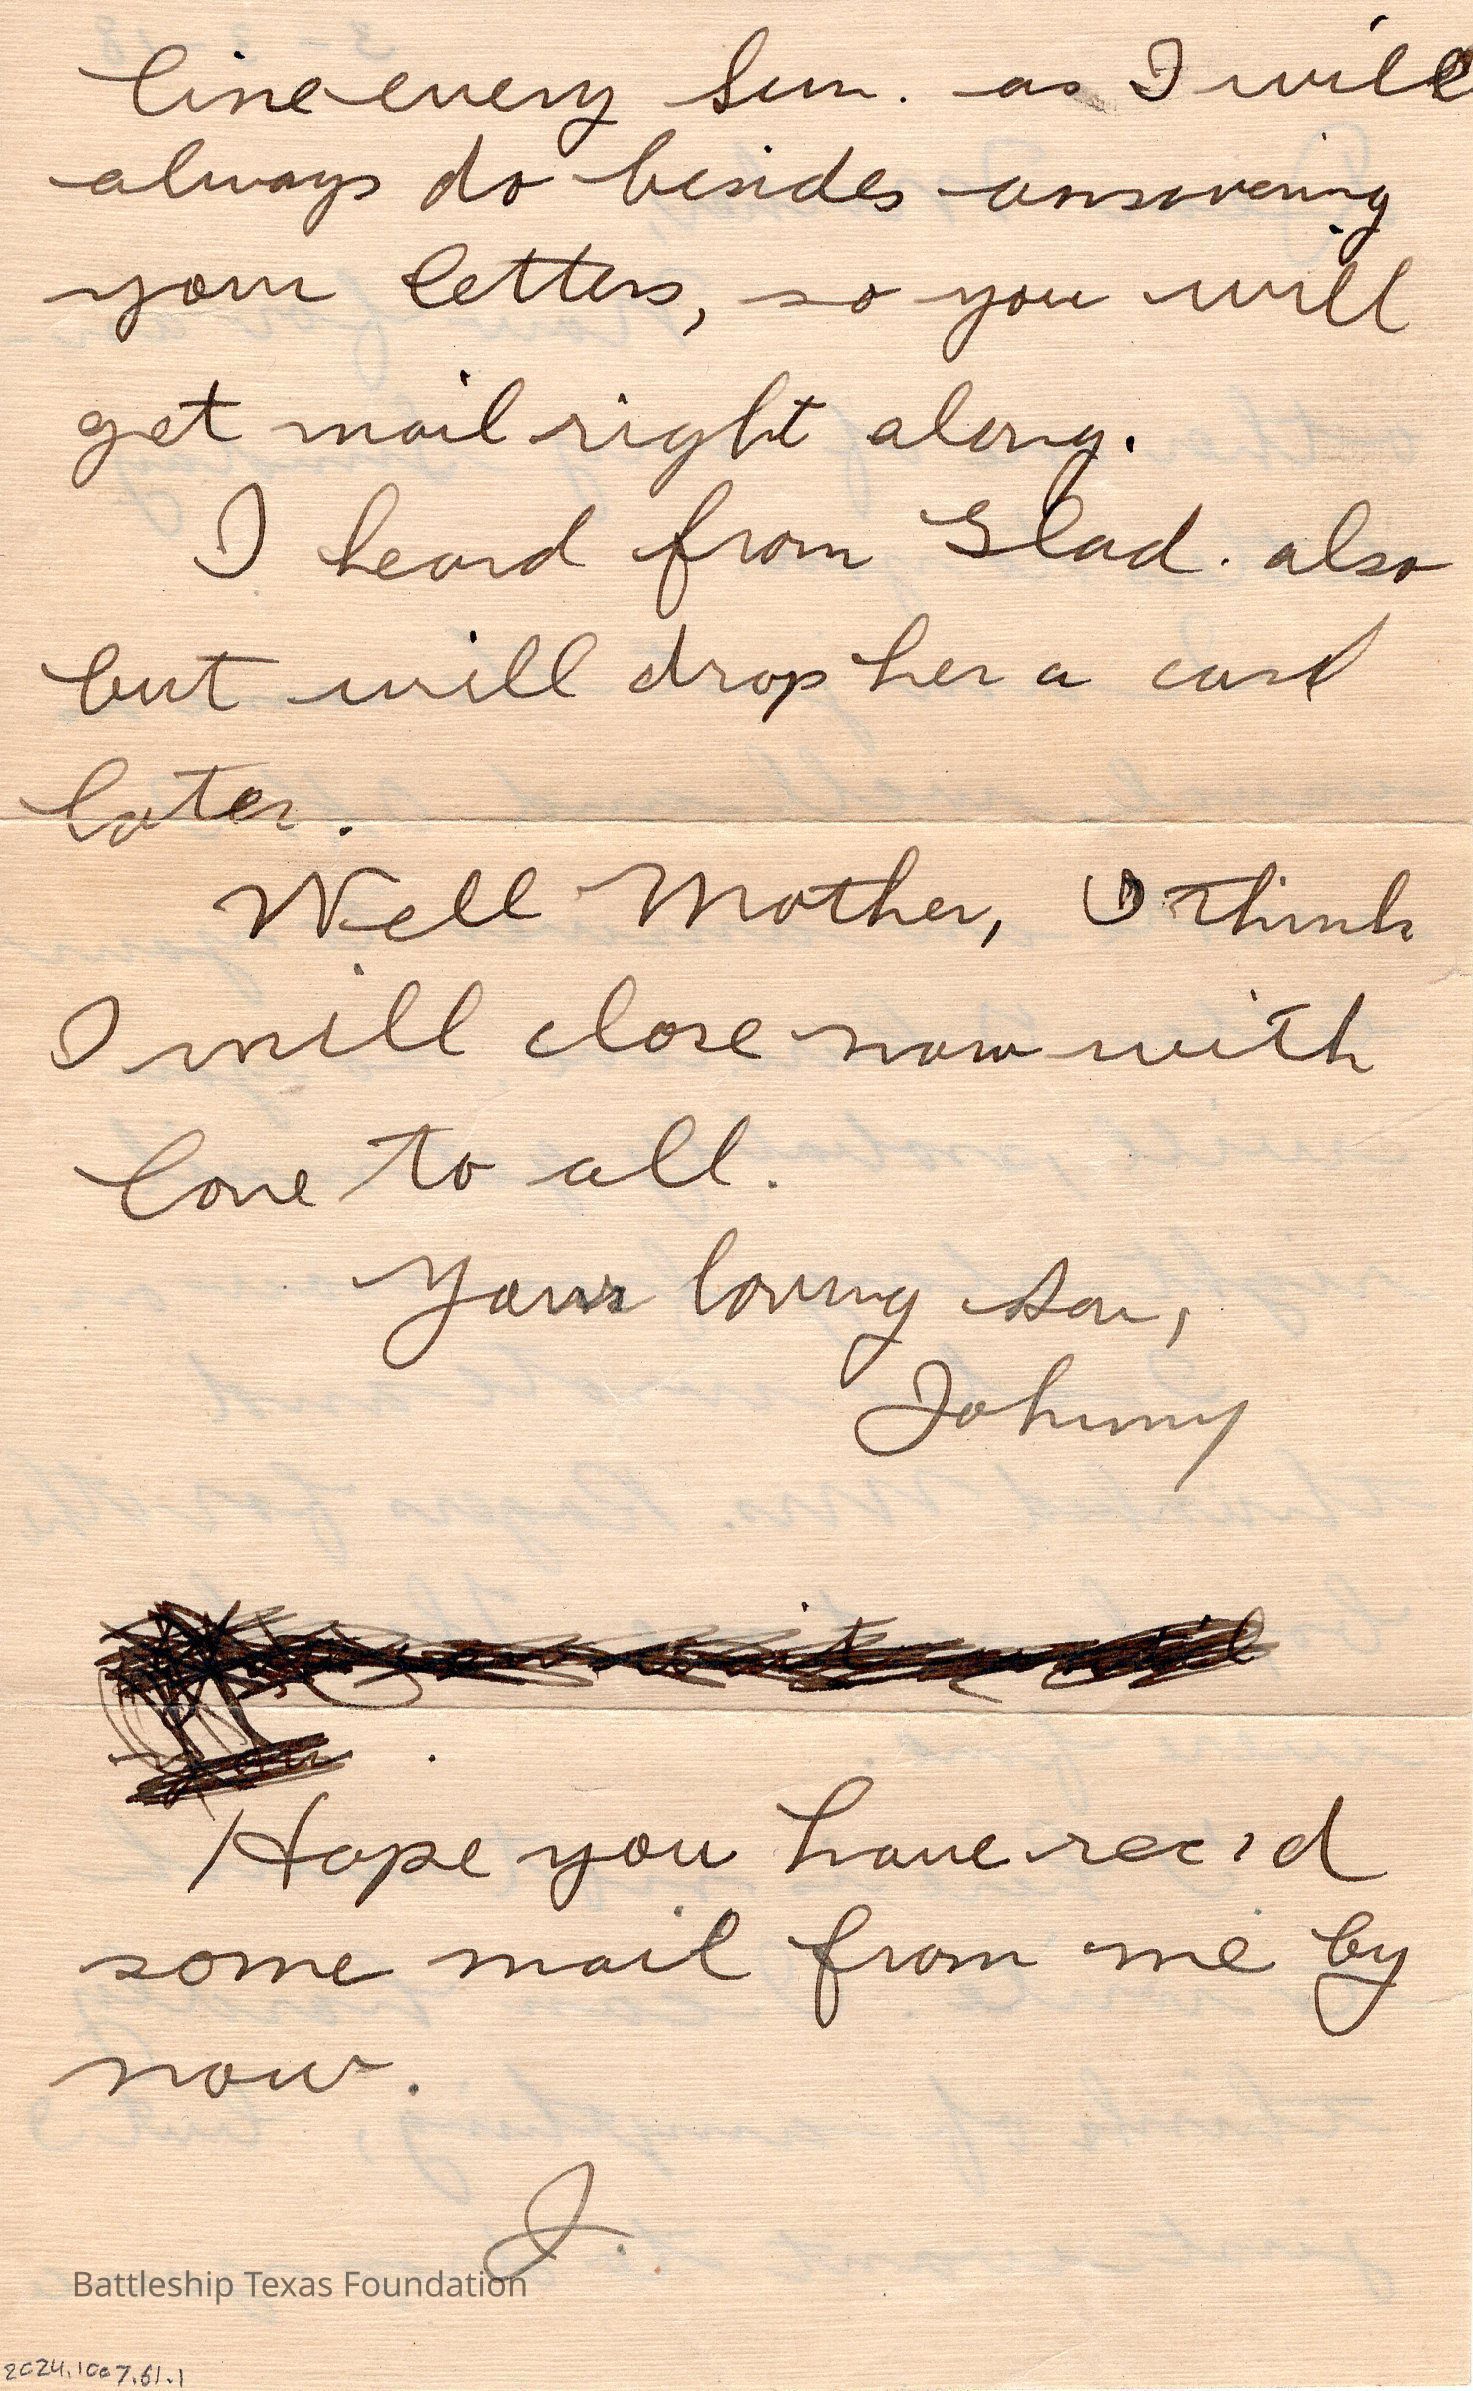 line every Sun. as I will
always do besides answering
your letters, so you will
get mail right along.
I heard from Glad. also
but will drop her a card
later.
Well Mother, I think
I will close now with
love to all.
Your loving son,
Johnny
Hope you have rec'd
some mail from me by
now.
J.
Battleship Texas Foundation
2024.1007.61.1